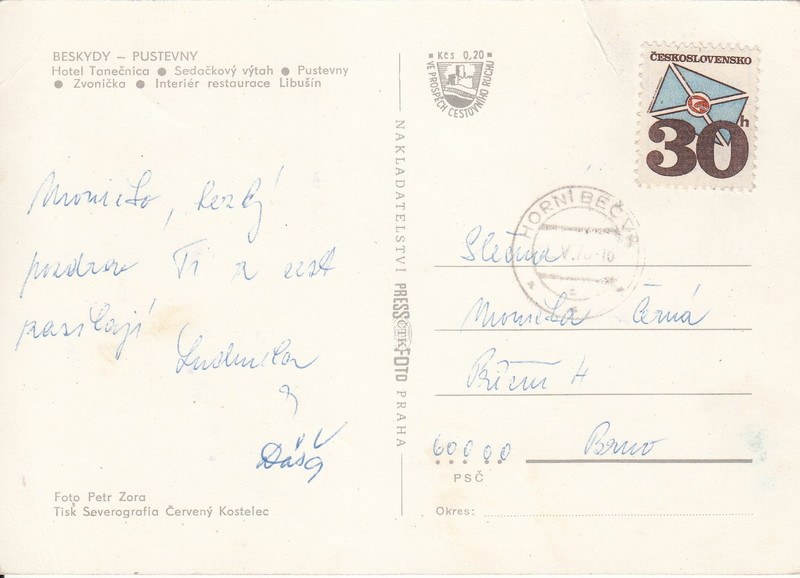 BESKYDY – PUSTEVNY
Hotel Tanečnica ● Sedačkový výtah ● Pustevny
● Zvonička ● Interiér restaurace Libušín
Kčs 0,20
VE PROSPĚCH CESTOVNÍHO RUCHU
ČESKOSLOVENSKO
30h
HORNÍ BEČVA
NAKLADATELSTVÍ PRESSFOTO PRAHA
ČTK
Moniko, hezký
pozdrav Ti z cest
zasílají
Ludmila
a
Dáša
Slečna
Monika Černá
4
600 00 Brno
PSČ
Okres:
Foto Petr Zora
Tisk Severografia Červený Kostelec